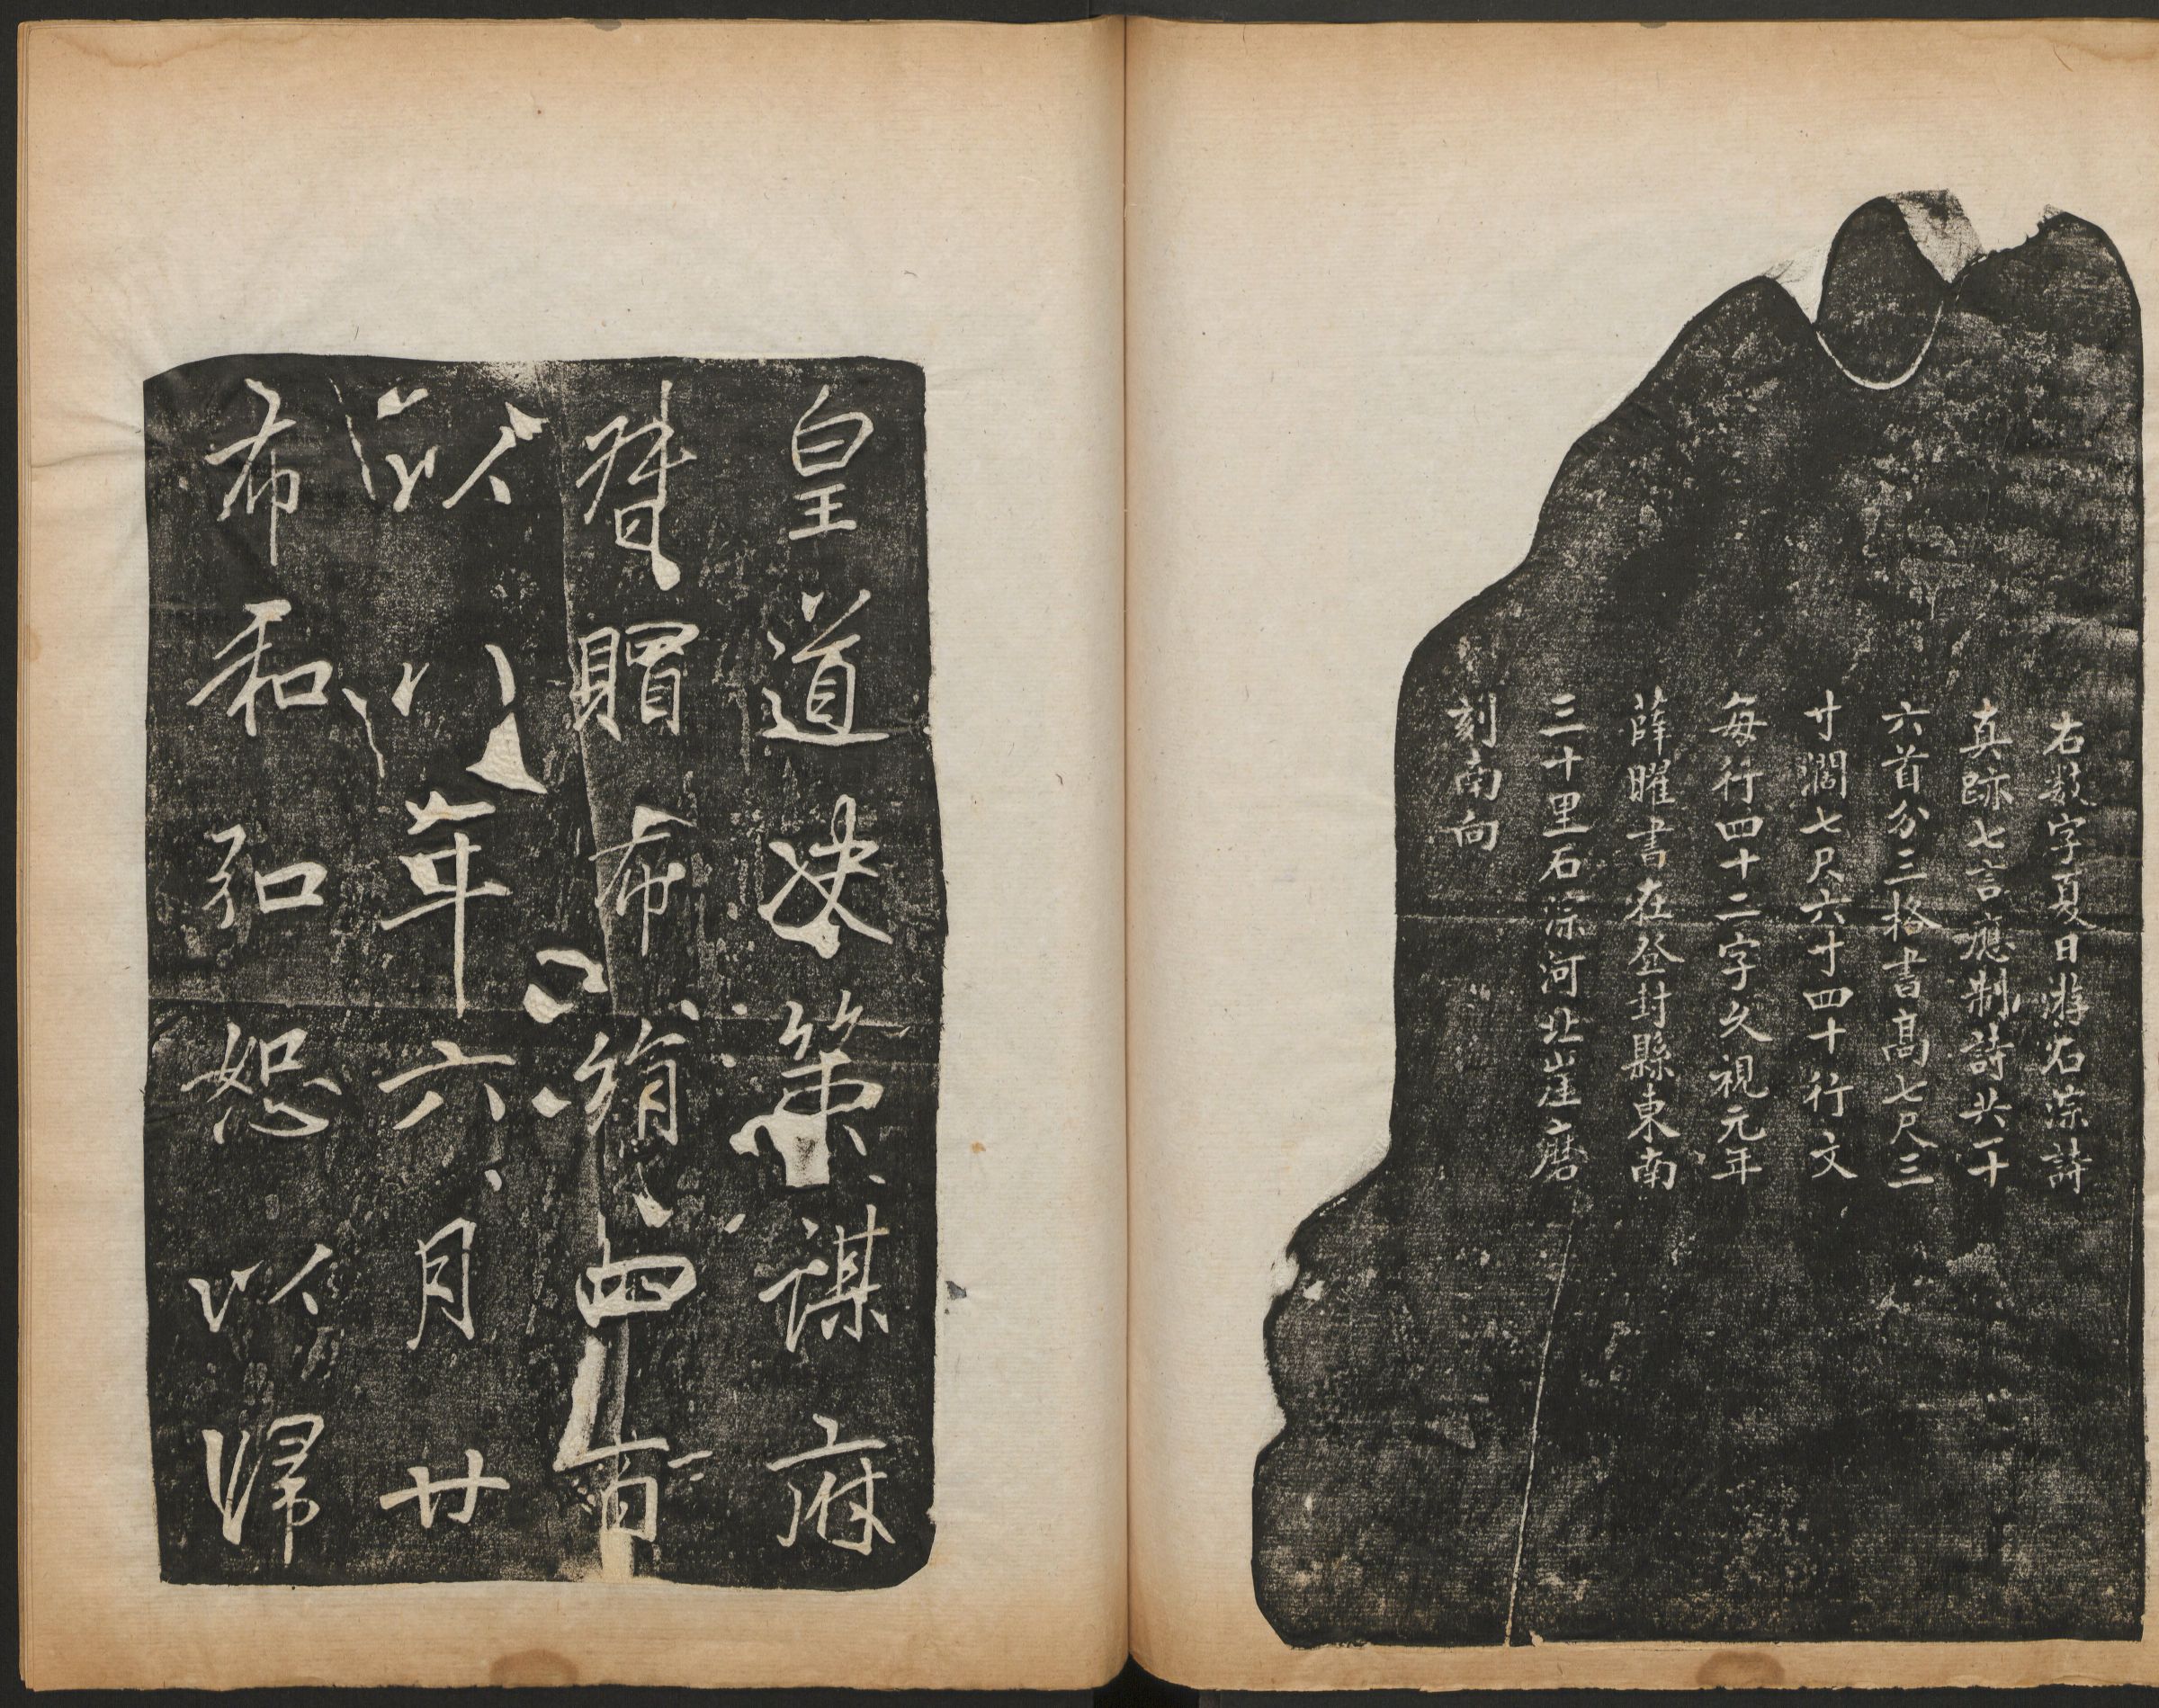 右數字夏日游石淙詩
真跡七言應制詩共一十
六首分三格書高七尺三
寸濶七尺六寸四十行文
每行四十二字久視元年
薛曜書在登封縣東南
三十里石淙河北崖磨
刻南向
皇道决策謀府
賵布絹四百
年六月廿
布和弘恕以歸